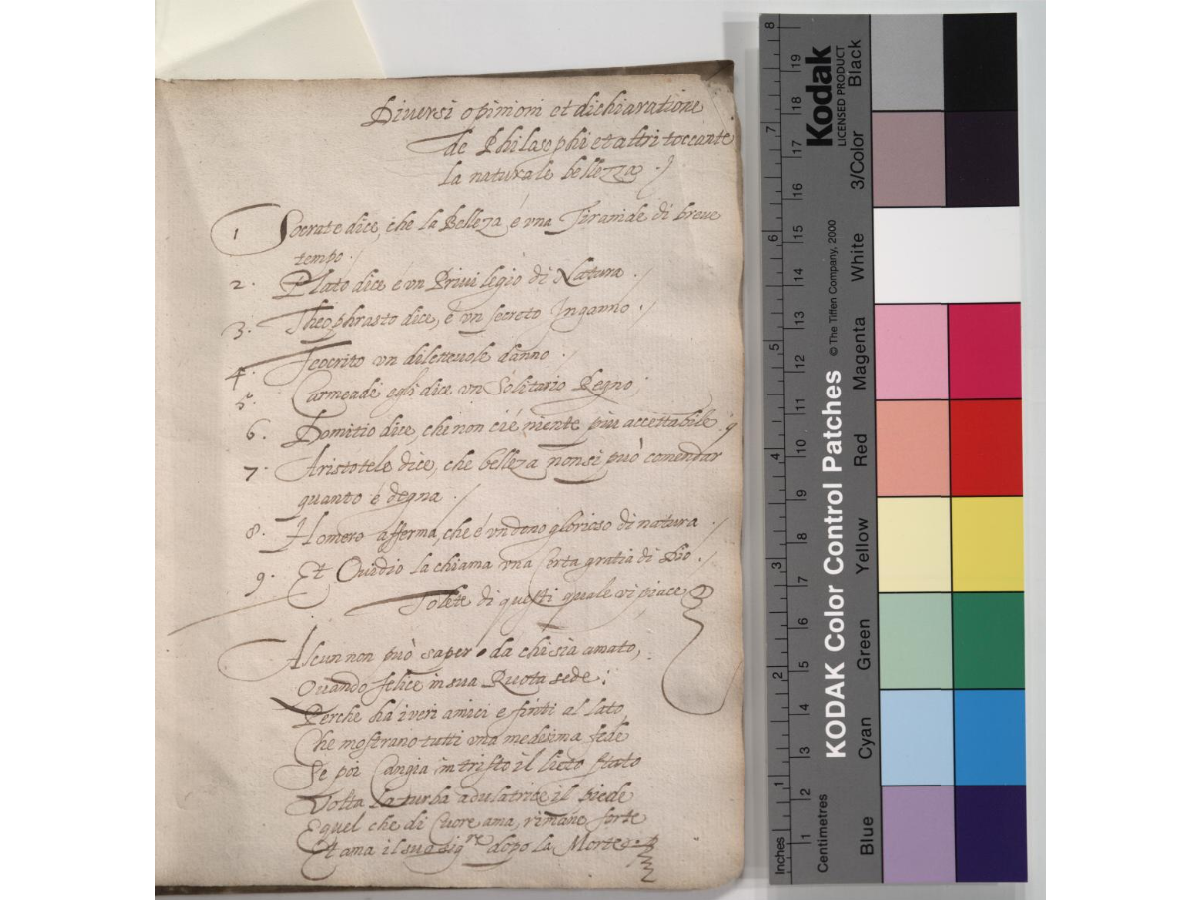 Diversi opinioni et dichiaratione
de Philosophi et altri toccante
la naturale bellezza
1 Socrate dice, che la Bellezza é vna Tiranide di breue
tempo.
2. Plato dice e vn Priuilegio di Natura.
3. Theophrasto dice, é vn secreto Inganno.
4. Teocrito vn diletteuole danno.
5. Carneade egli dice vn Solitario Regno;
6. Domitio dice, che non ci é mente piu accettabile.
7. Aristotele dice, che bellezza non si può comendar
quanto é degna.
8. Homero afferma, che é vn dono glorioso di natura.
9. Et Ouidio la chiama vna Certa gratia di Dio.
Tolete di questi quale vi piace
Alcun non può saper da chi sia amato,
Quando felice in sua Ruota sede;
Perche ha i veri amici e finti al lato,
Che mostrano tutti vna medesima fede
Se poi Cangia in tristo il lieto stato
Volta la turba adulatrice il piede
E quel che di Cuore ama, rimane forte
Et ama il suo sigre dopo la Morte.
8 19 18 7 17 16 6 15 14 13 5 12 11 4 10 9 8 3 7 6 2 5 4 3 1 2 1
Inches
Centimetres
KODAK Color Control Patches © The Tiffen Company, 2000
Kodak
LICENSED PRODUCT
Black
3/Color
White
Magenta
Red
Yellow
Green
Cyan
Blue